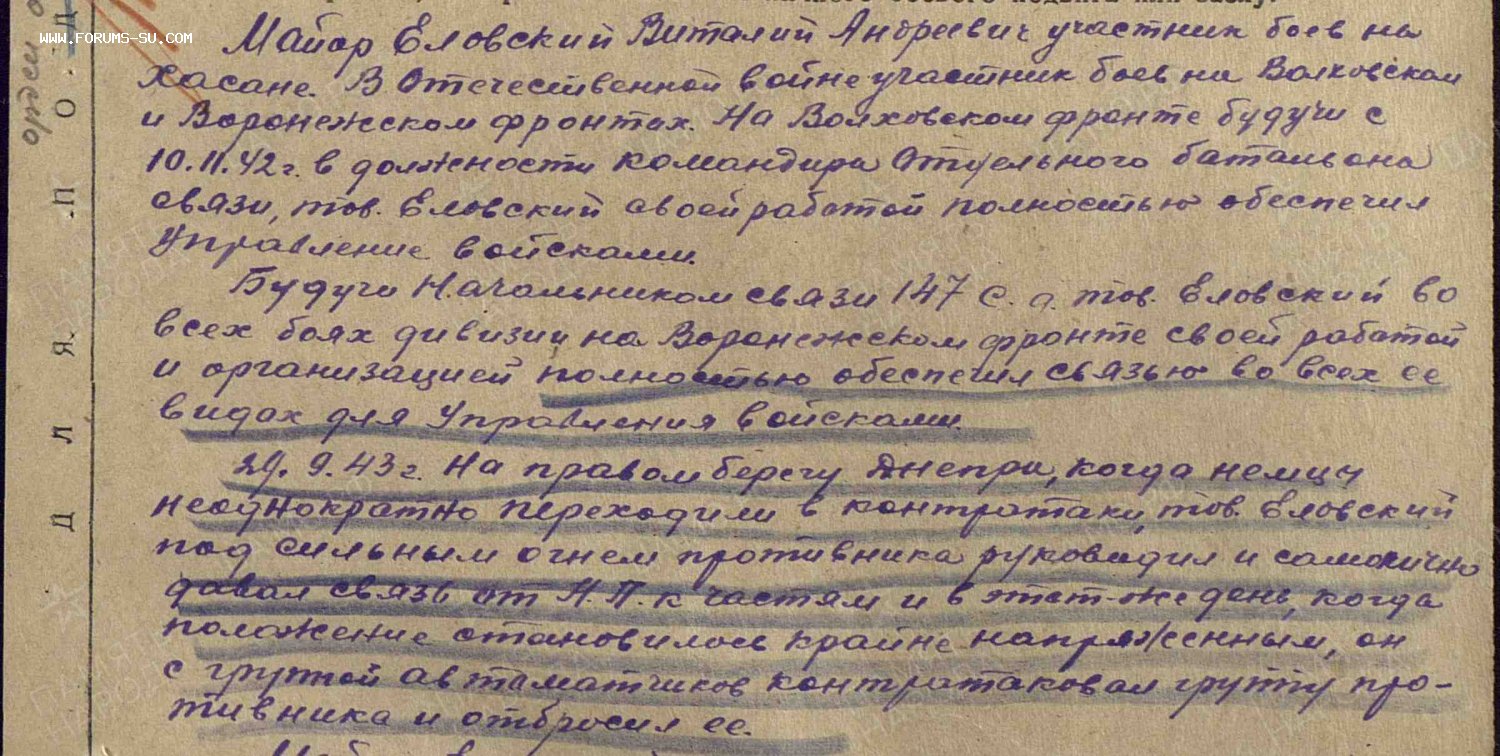 www.forums-su.com
Майор Еловский Виталий Андреевич участник боев на
Хасане. В Отечественной войне участник боев на Волховском
и Воронежском фронтах. На Волховском фронте будучи с
10.11.42 г. в должности командира Отдельного батальона
связи, тов. Еловский своей работой полностью обеспечил
Управление войсками.
Будучи Начальником связи 147 с.д. тов. Еловский во
всех боях дивизии на Воронежском фронте своей работой
и организацией полностью обеспечил связью во всех ее
видах для Управления войсками.
29.9.43 г. На правом берегу Днепра, когда немцы
неоднократно переходили в контратаки, тов. Еловский
под сильным огнем противника руководил и самолично
давал связь от Н.П. к частям и в этот-же день, когда
положение становилось крайне напряженным, он
с группой автоматчиков контратаковал группу про-
тивника и отбросил ее.
Д Л Я П О Д
орден